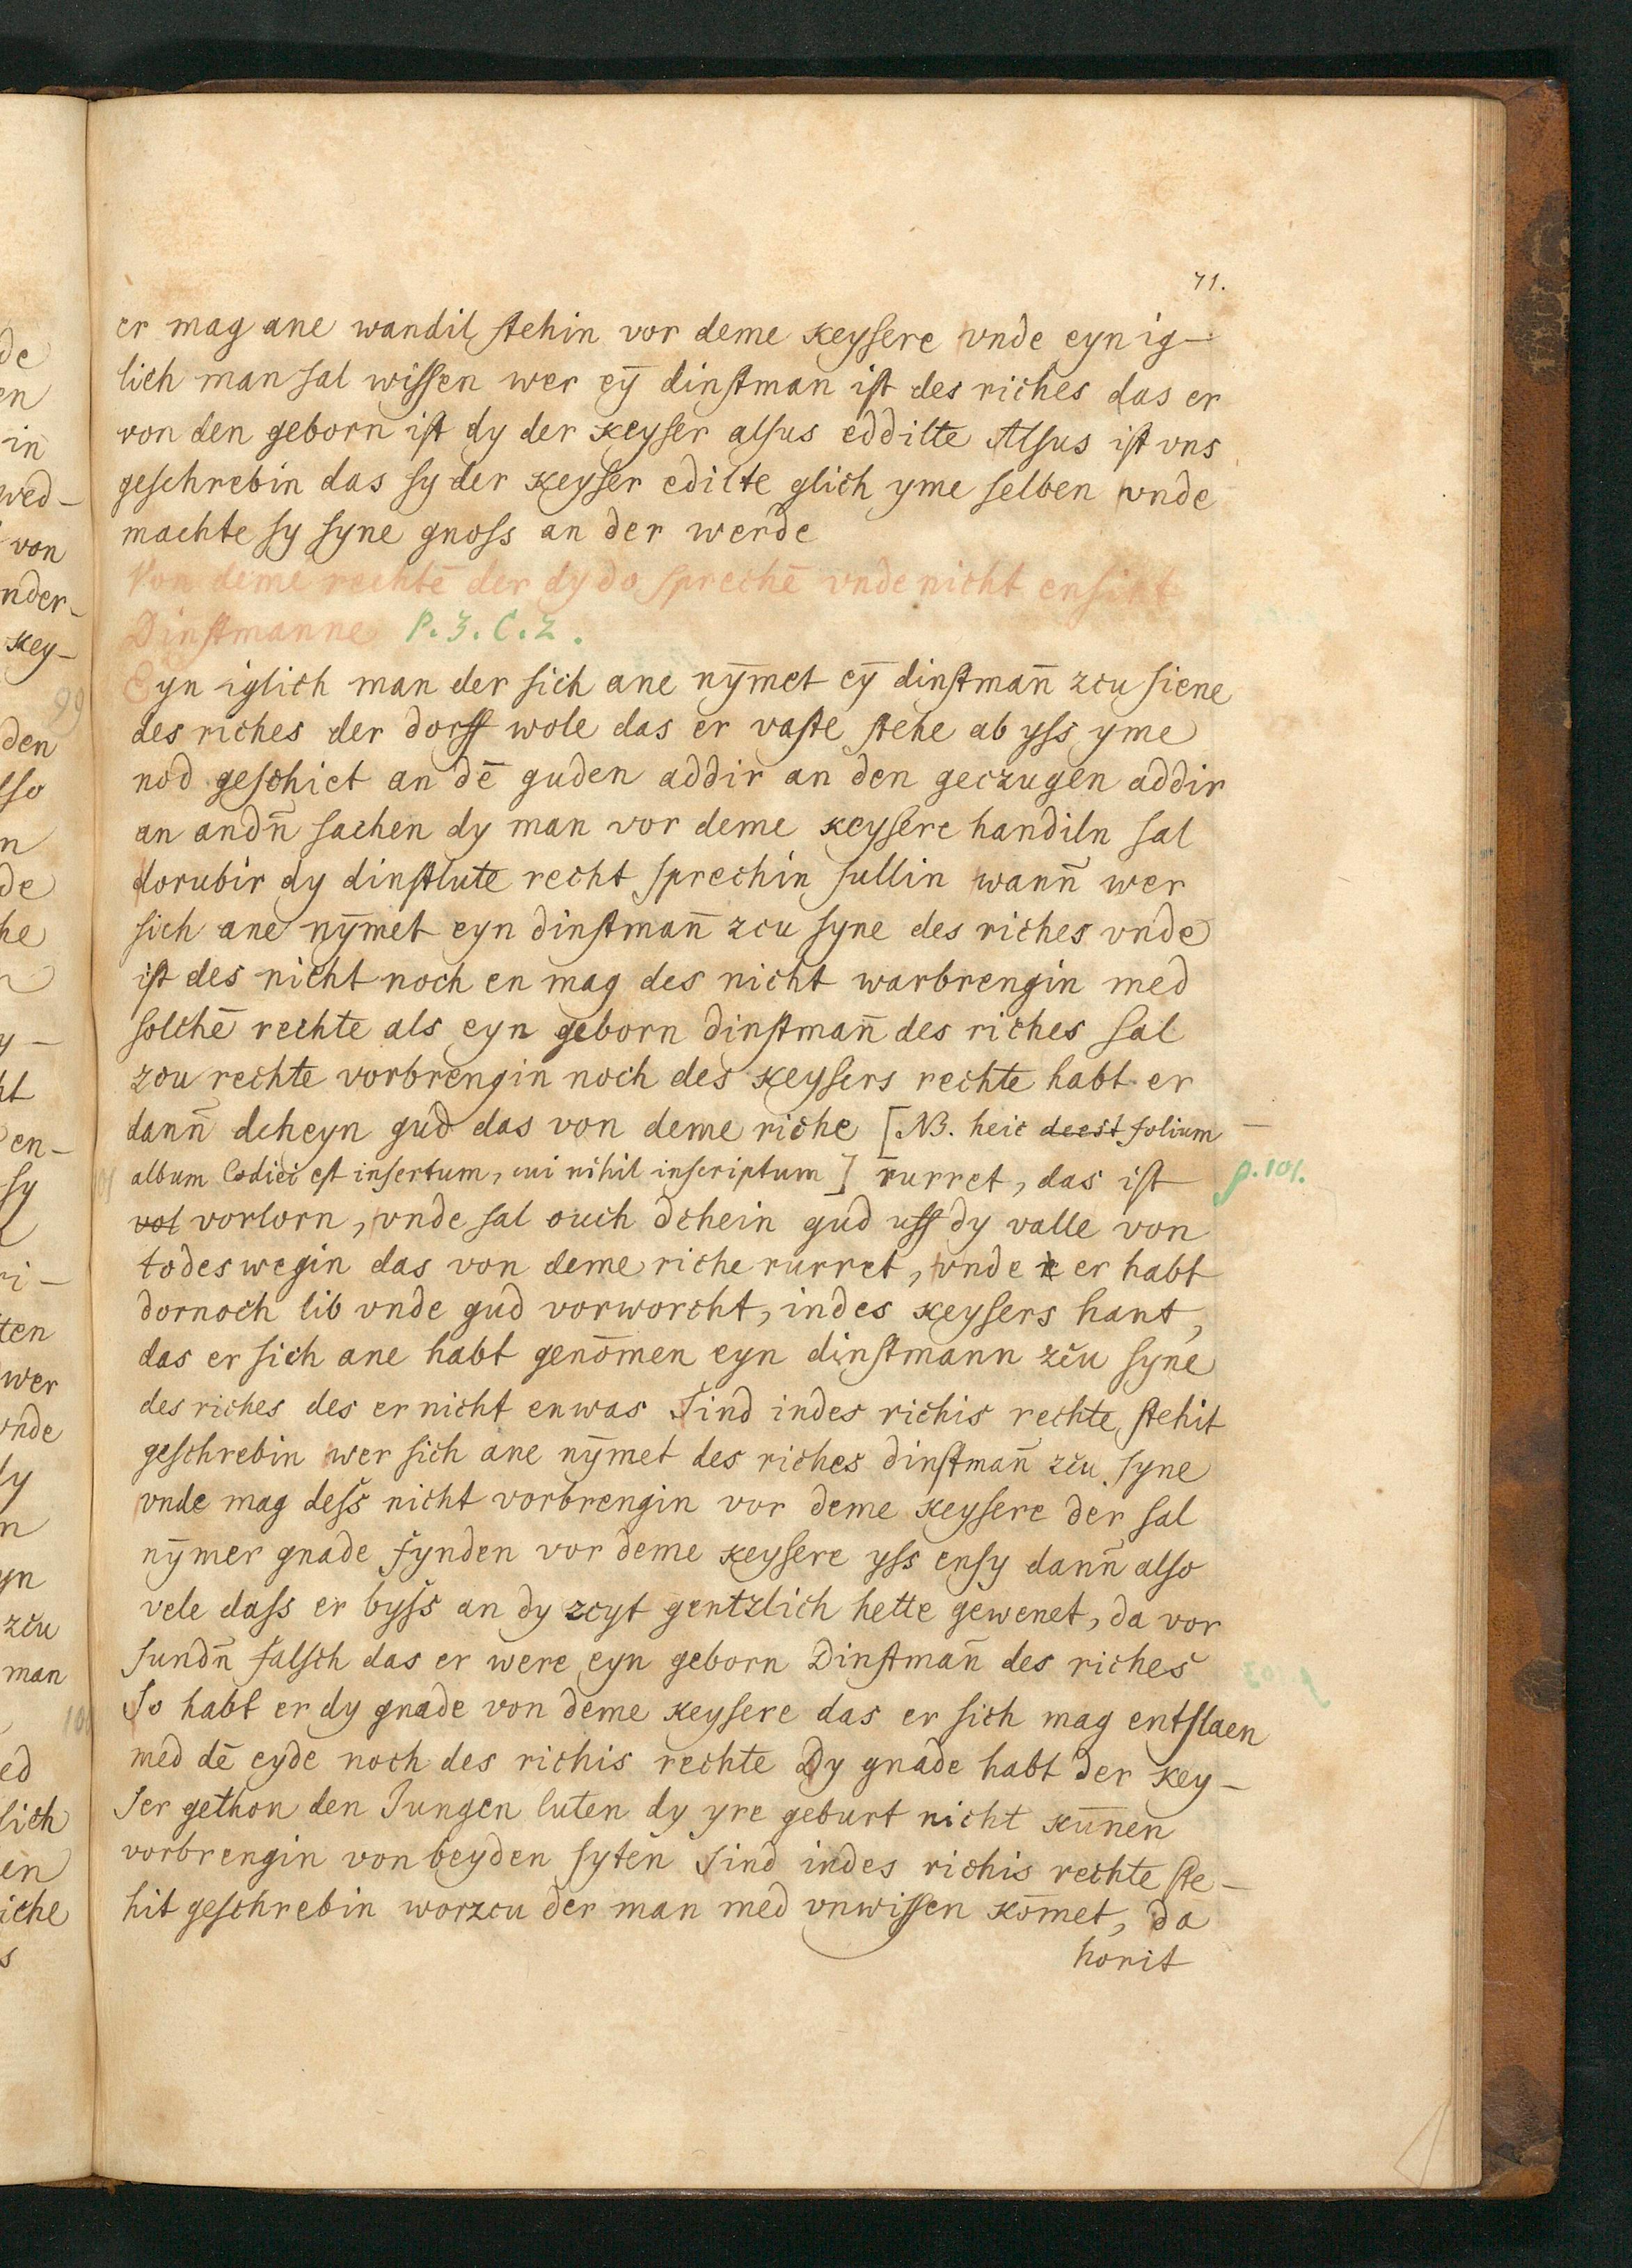 71.
er mag ane wandil stehin vor deme keysere vnde eyn ig-
lich man sal wissen wer eȳ dinstman ist des riches das er
von den geborn ist dy der keyser alsus eddilte Alsus ist vns
geschrebin das sy der keyser edilte glich yme selben vnde
machte sy syne gnoss an der werde
Von deme rechtē der dy do sprechē vnde nicht ensint
Dinstmanne P. 3. C. 2.
Eyn iglich man der sich ane nȳmet eȳ dinstman̄ zcu siene
des riches der dorff wole das er vaste stehe ab yss yme
nod geschiet an dē guden addir an den geczugen addir
an andn̄ sachen dy man vor deme keysere handiln sal
dorubir dy dinstlute recht sprechin sullin wann̄ wer
sich ane nȳmet eyn dinstman̄ zcu syne des riches vnde
ist des nicht noch en mag des nicht warbrengin med
solchē rechte als eyn geborn dinstman̄ des riches sal
zcu rechte vorbrengin noch des keysers rechte habt er
dann̄ deheyn gud das von deme riche [NB. heic deest folium
album Codici est insertum, cui nihil inscriptum] rurret, das ist
p. 101.
vol vorlorn, vnde sal ouch dehein gud uff dy valle von
todes wegin das von deme riche rurret, vnde er habt
dornoch lib vnde gud vorworcht, in des keysers hant,
das er sich ane habt genōmen eyn dinstmann zcu syne
des riches des er nicht enwas Sind in des richis rechte stehit
geschrebin wer sich ane nȳmet des riches dinstman̄ zcu syne
vnde mag dess nicht vorbrengin vor deme keysere der sal
nȳmer gnade fynden vor deme keysere yss ensy dann̄ also
vele dass er byss an dy zcyt gentzlich hette gewenet, da vor
sundn̄ falsch das er were eyn geborn Dinstman̄ des riches
So habt er dy gnade von deme keysere das er sich mag entslaen
med dē eyde noch des richis rechte Dy gnade habt der key-
ser gethon den Jungen luten dy yre geburt nicht kūnen
vorbrengin von beyden syten Sind in des richis rechte ste-
hit geschrebin worzcu der man med vnwissen kōmet, da
horit